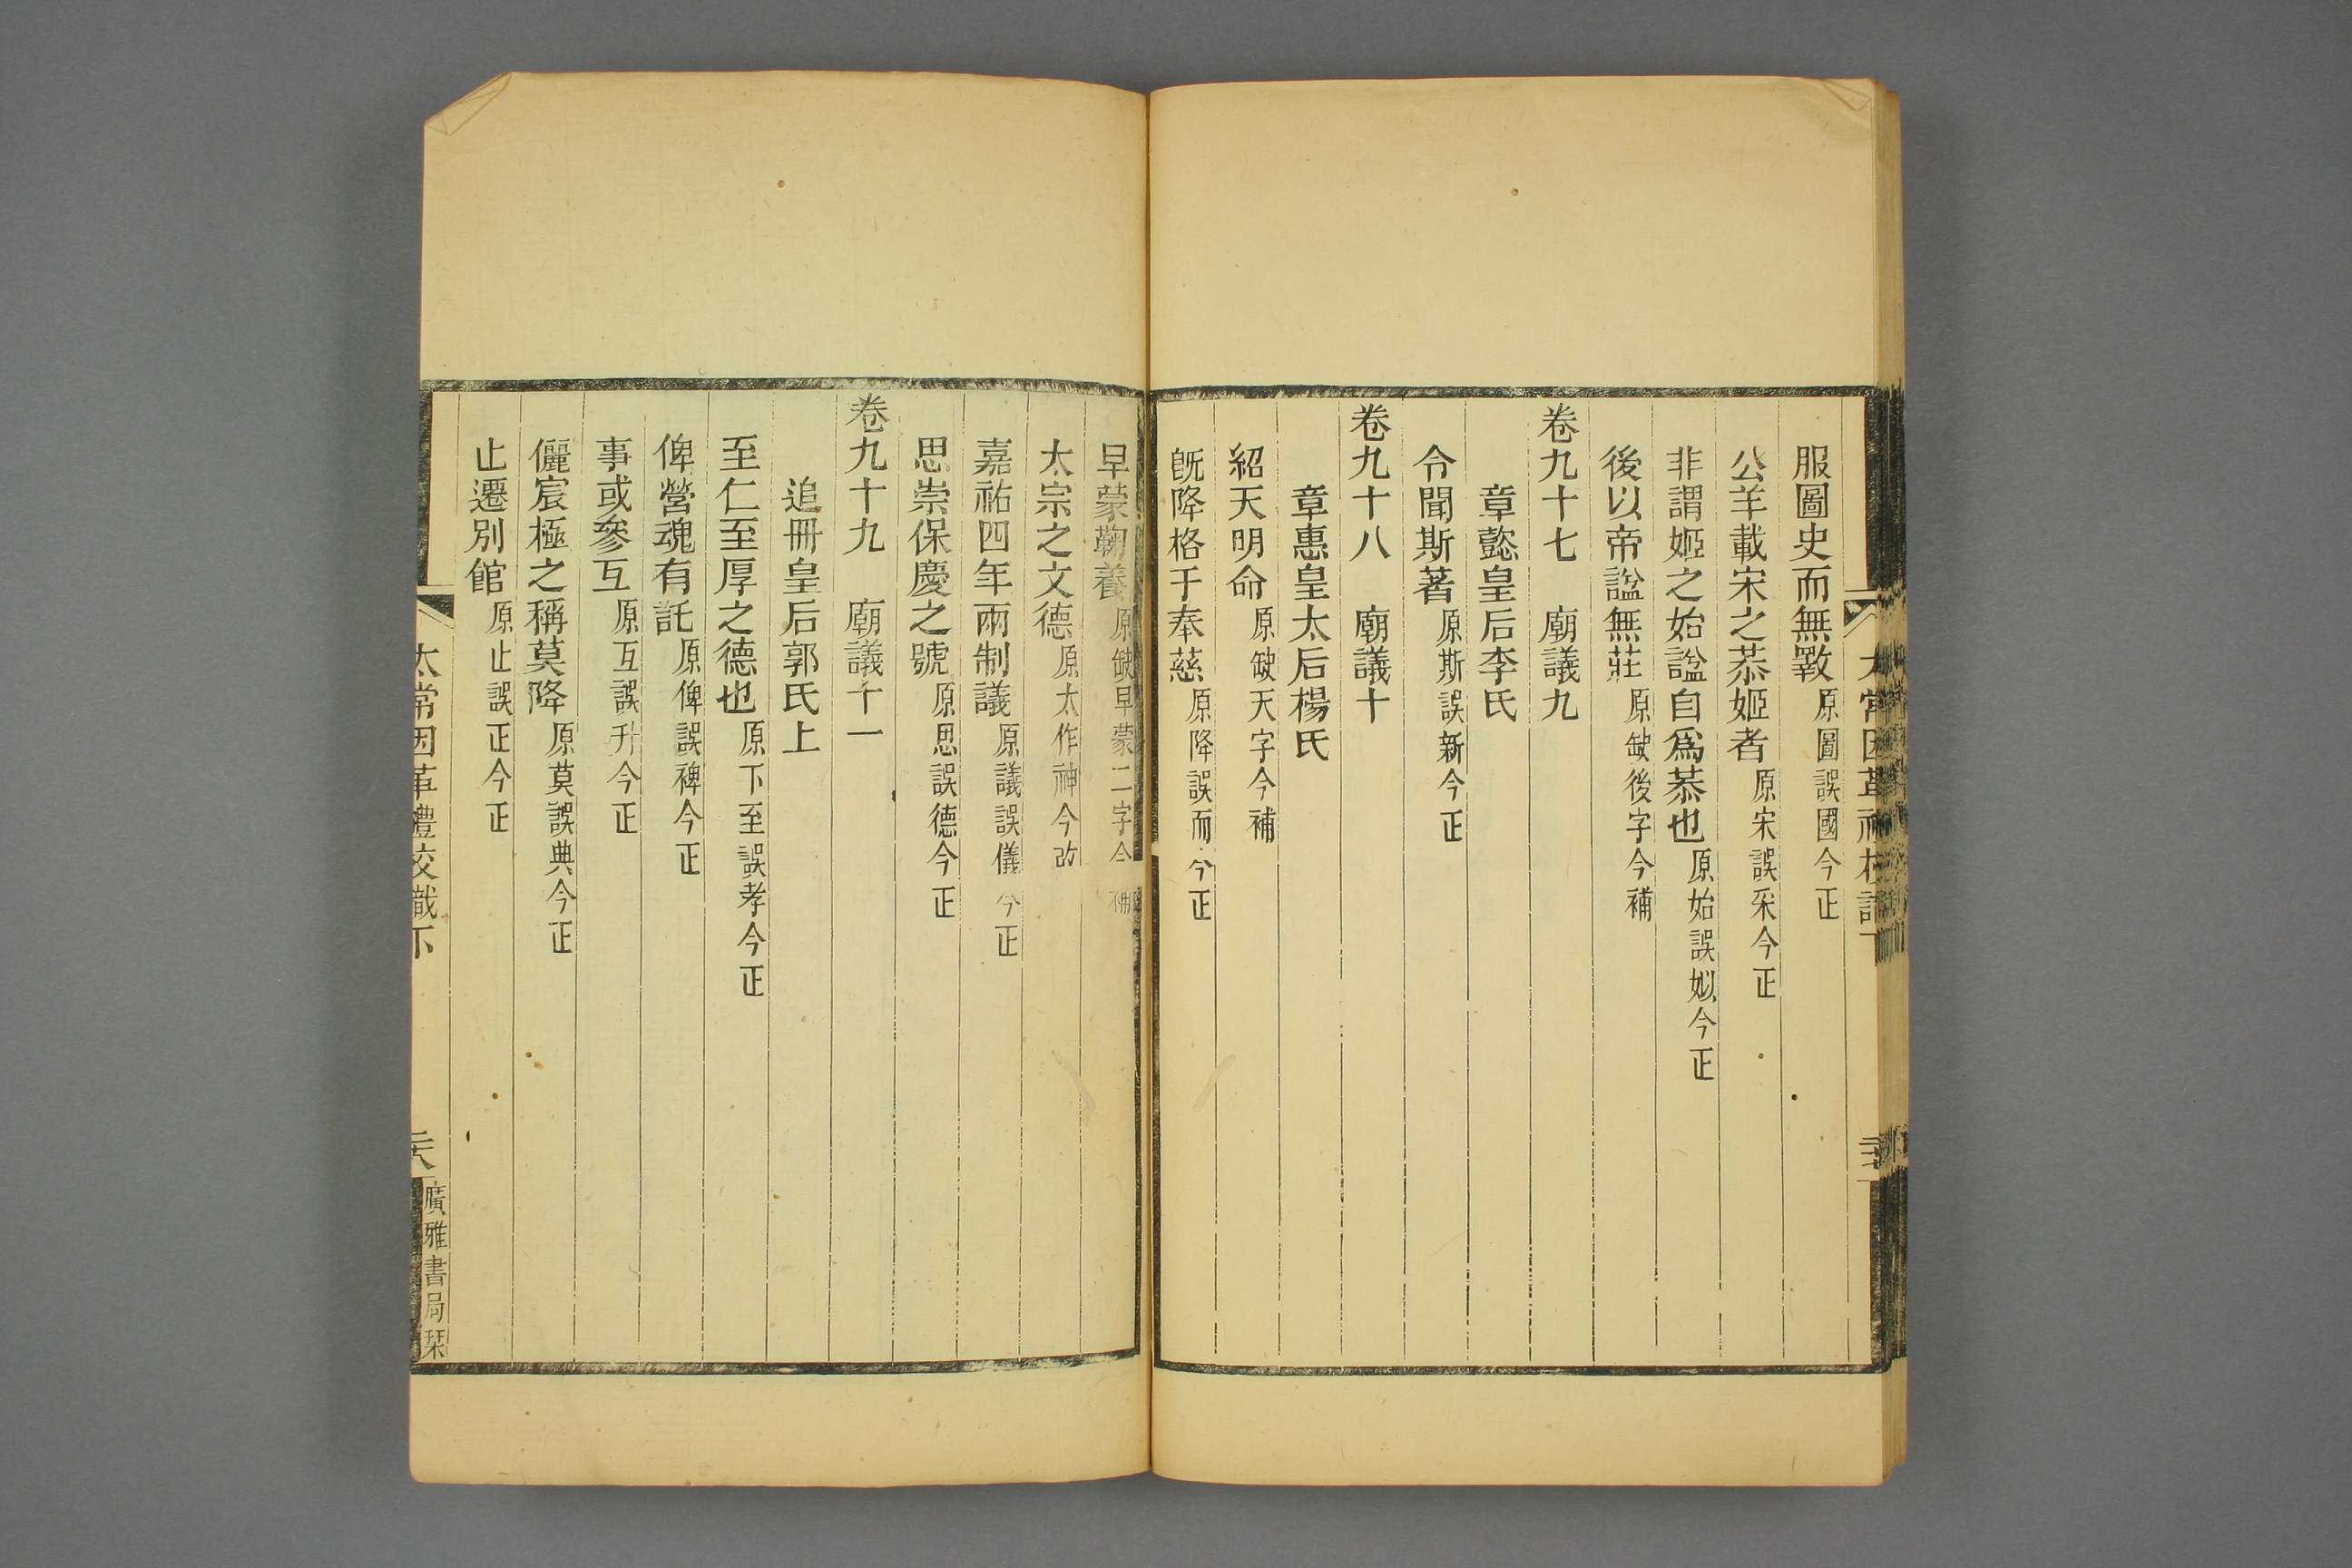 服圖史而無斁原圖誤國今正
公羊載宋之恭姬者原宋誤采今正
非謂姬之始諡自爲恭也原始誤姒今正
後以帝諡無莊原缺後字今補
卷九十七 廟議九
章懿皇后李氏
令聞斯著原斯誤新今正
卷九十八 廟議十
章惠皇太后楊氏
紹天明命原缺天字今補
旣降格于奉慈原降誤而今正
早蒙鞠養原缺早蒙二字今補
太宗之文德原太作神今改
嘉祐四年兩制議原議誤儀今正
思崇保慶之號原思誤德今正
卷九十九 廟議十一
追冊皇后郭氏上
至仁至厚之德也原下至誤孝今正
俾營魂有託原俾誤裨今正
事或參互原互誤升今正
儷宸極之稱莫降原莫誤典今正
止遷別館原止誤正今正
太常因革禮校識下
廣雅書局栞